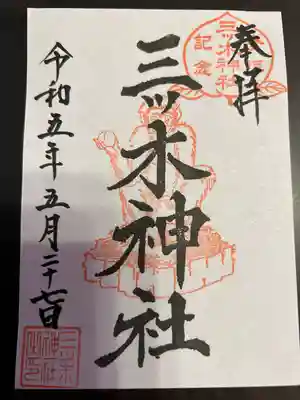 奉拝
三ツ木神社
記念
三ツ木神社
令和五年五月二十七日
三木神社之印